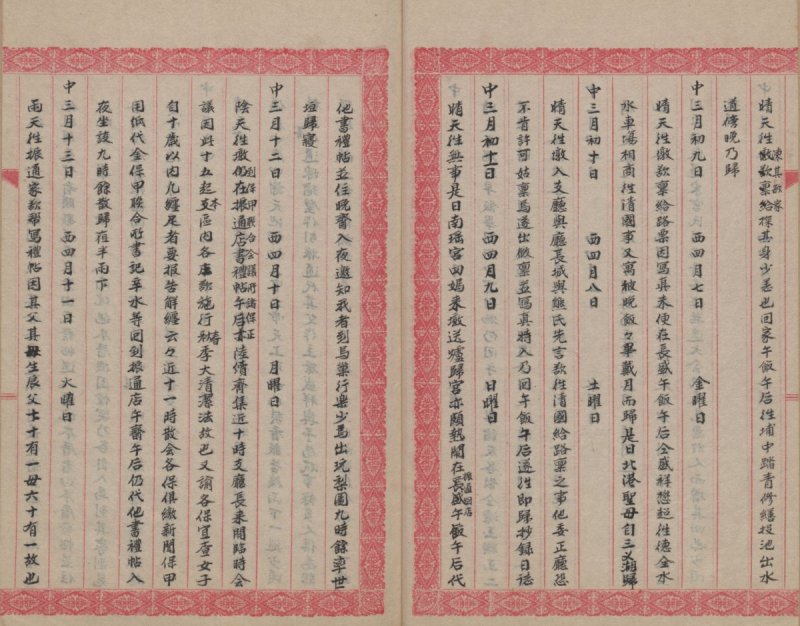 晴天往墩歇稟給探其身少善也回家午飯午后往埔中踏青修繕投池出水
凍其敬家
道傍晚乃歸
中三月初九日 西四月七日 金曜日
晴天往墩歇稟給路票因寫真未便在長盛午飯午后全盛祥懋超往德全水
水車傷相商往清國事又寓被晚飯々畢戴月而歸是日北港聖母自三叉湖歸
中三月初十日 西四月八日 土曜日
晴天往墩入支廳與廳長域與熊氏先言欲往清國給路票之事他委正廳恐
不肯許可姑稟焉遂出繳稟並寫真時入乃回午飯午后遂往即歸抄錄日誌
中三月初十一日 西四月九日 日曜日
晴天往無事是日南瑤宮回媽來墩送爐歸宮亦頗熱鬧在長盛午飯午后代
振通回店
他書禮帖並任晚齋入夜邀知我者到馬藥行樂少焉出玩梨園九時餘率世
垣歸寢
中三月十二日 西四月十日 月曜日
陰天往墩仍在振通店書禮帖午后陸續齊集近十時支廳長來開臨時會
到保甲聯合會議所諸保正
議因此十五起支區內各庄欲施行春季大清潔法故也又諭各保宜查女子
自十歲以內凡纏足者要報告解纏云々近十一時散會各保俱繳新聞保甲
用紙代金保甲聯合所書記卓水等回到振通店午齋午后仍代他書禮帖入
夜坐談九時餘散歸夜半雨下
中三月十三日 西四月十一日 火曜日
雨天往振通家欲幫寫禮帖因其父其母生辰父七十有一母六十有一故也